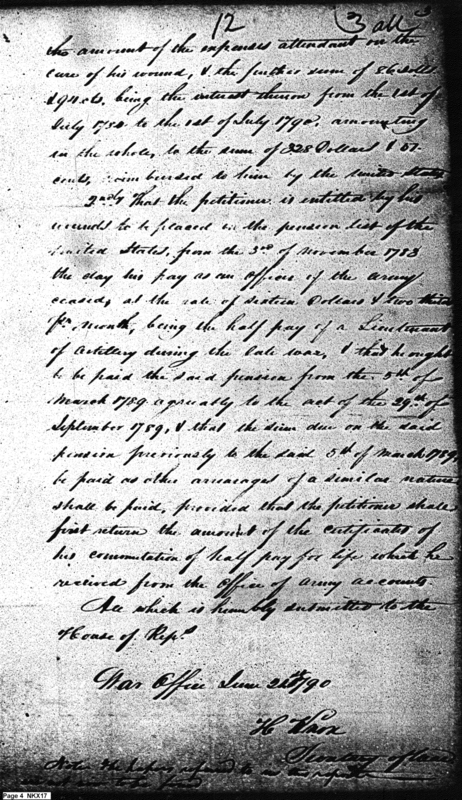 12
the amount of the expenses attendant on the
cure of his wound, & the further sum of 86 Dolls
& 94 cts, being the interest thereon from the 1st of
July 1784 to the 1st of July 1790, amounting
in the whole, to the sum of 328 Dollars &
cents, reimbursed to him by the United States
2ndly That the petitioner is entitled by his
wounds to be placed on the pension list of the
United States, from the 3rd of November 1783
the day his pay as an Officer of the Army
ceased, at the rate of sixteen Dollars & two thirds
pr. month, being the half pay of a Lieutenant
of Artillery during the late war, & that he ought
to be paid the said pension from the 5th of
March 1789 agreeably to the act of the 29th of
September 1789, & that the sum due on the said
pension previously to the said 5th of March 1789,
be paid as other arrearages of a similar nature
shall be paid, provided that the petitioner shall
first return the amount of the certificates of
his commutation of half pay for life which he
received from the Office of Army accounts
All which is humbly submitted to the
House of Reps
War Office June 1790
H Knox
Secretary of
Note The papers referred to in this report
Page 4 NKX17